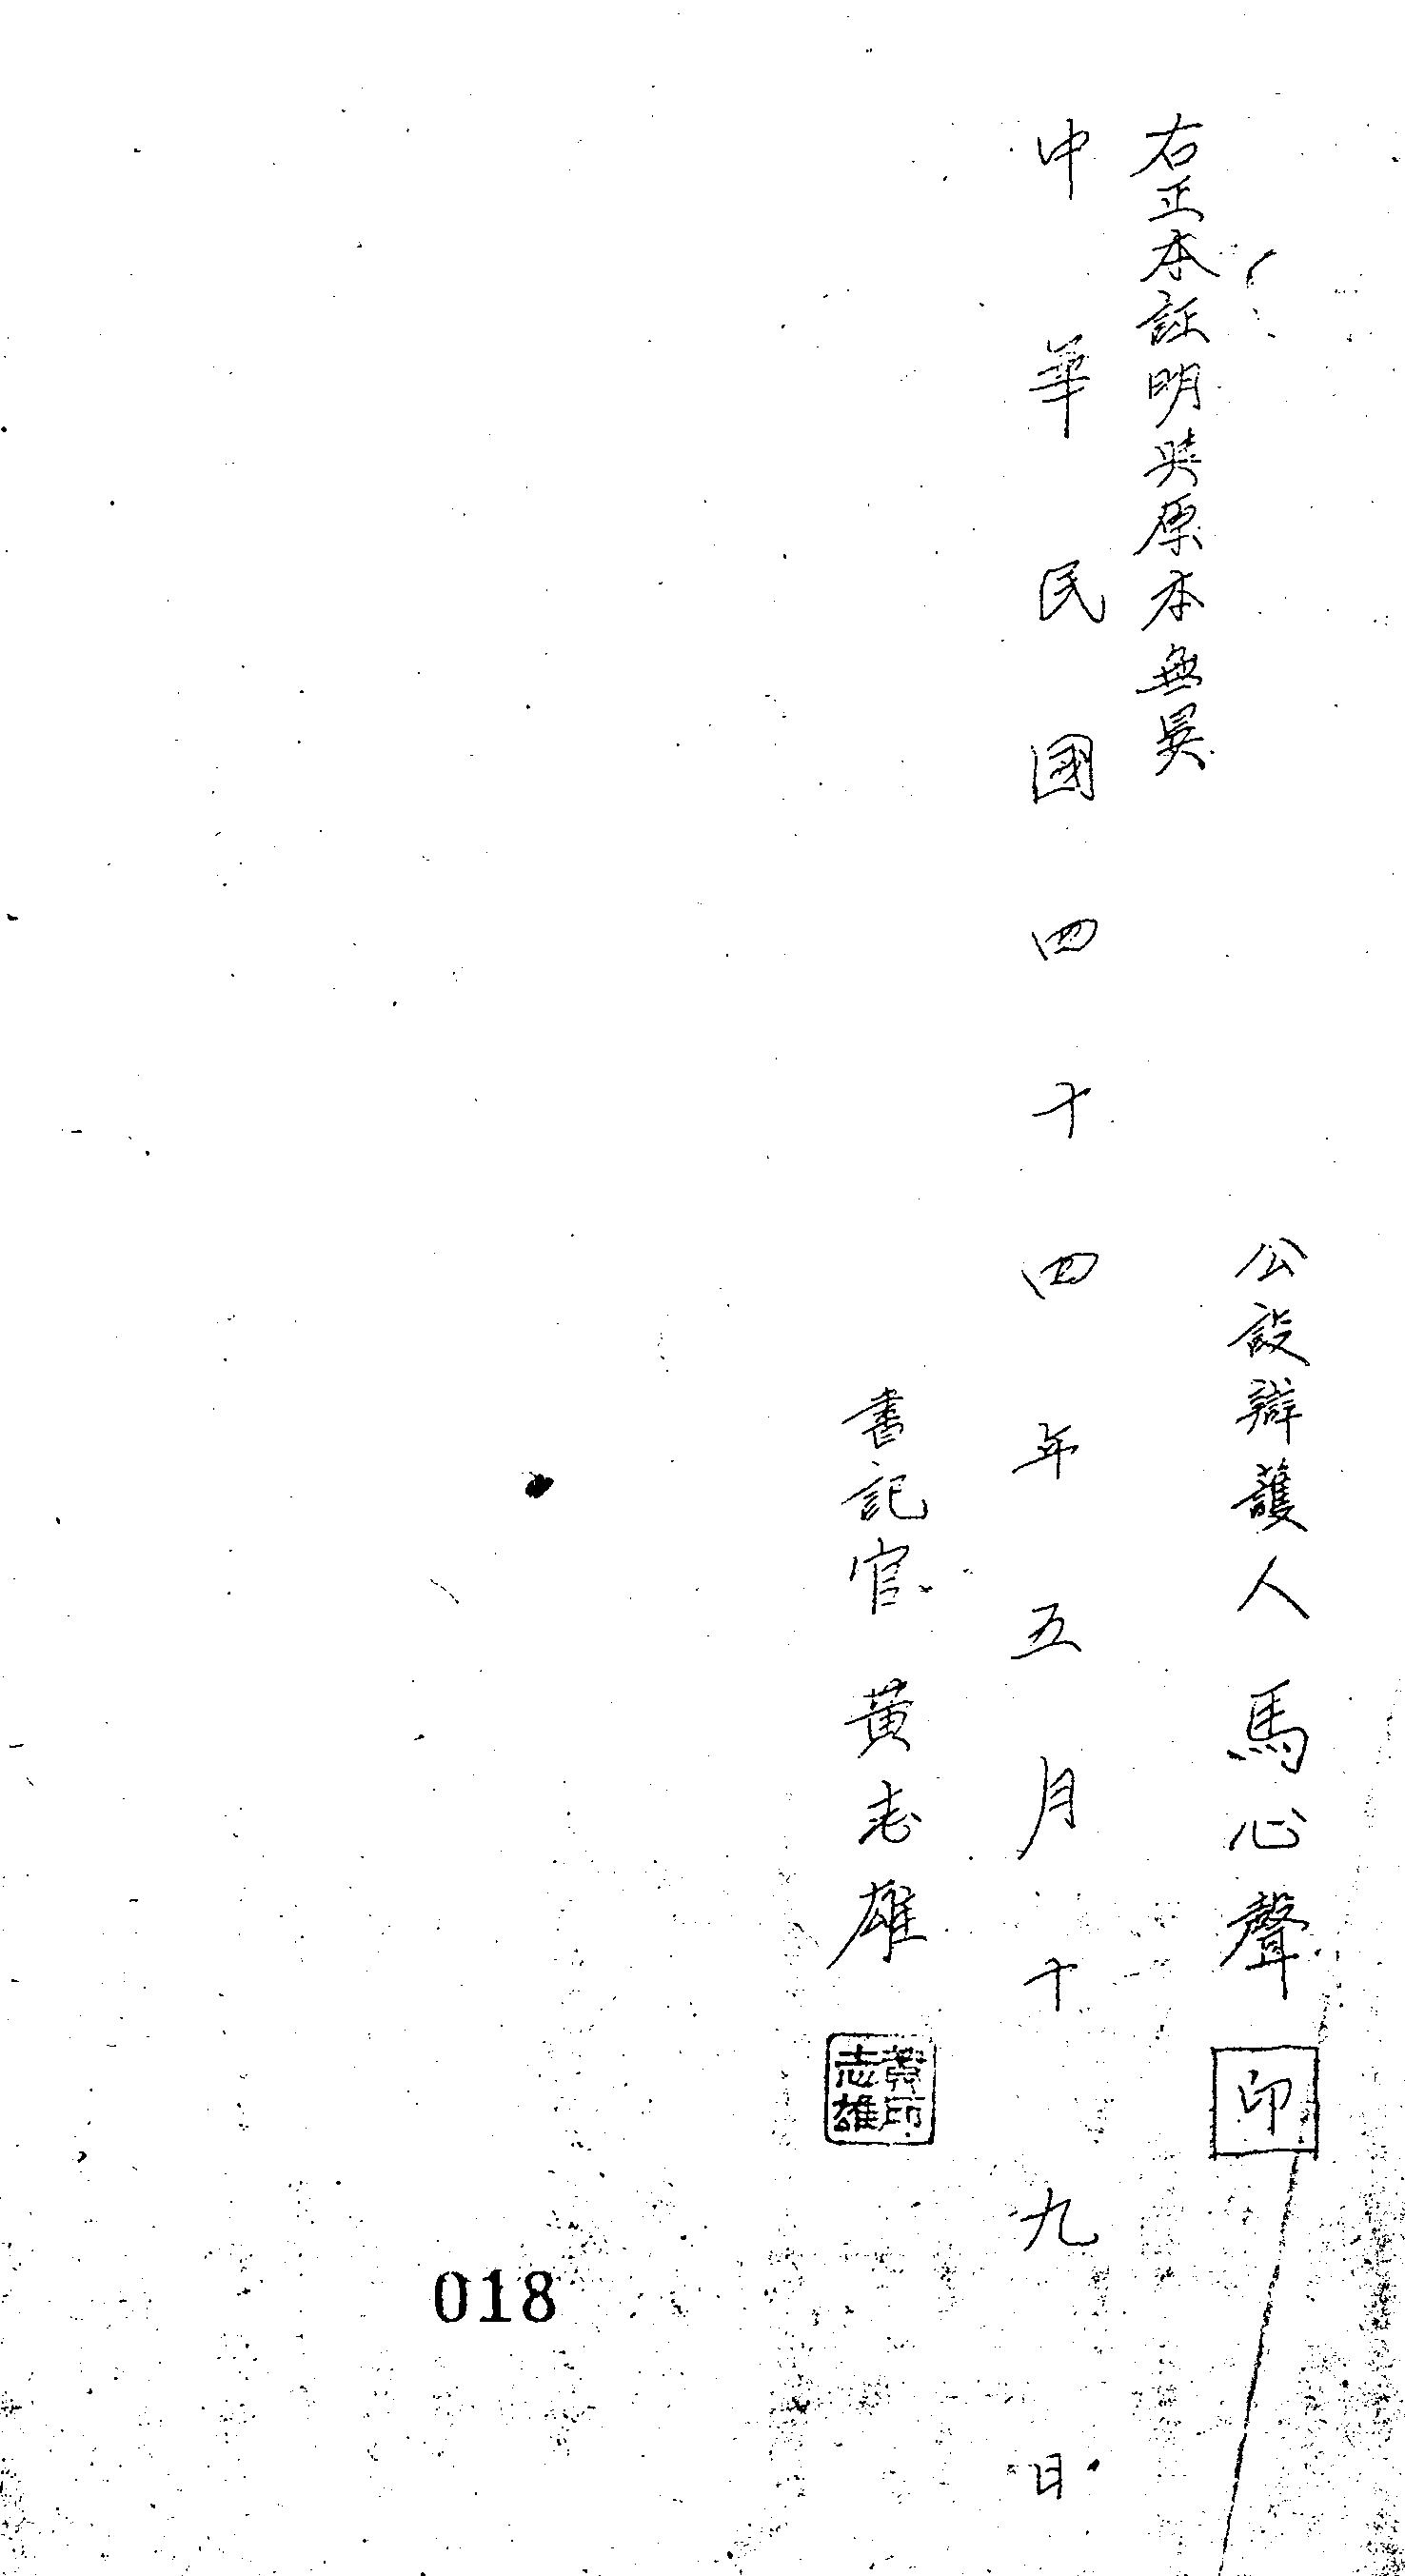 公設辯護人 馬心聲 印
右正本証明與原本無異
中華民國四十四年五月十九日
書記官 黃志雄
黃印志雄
018